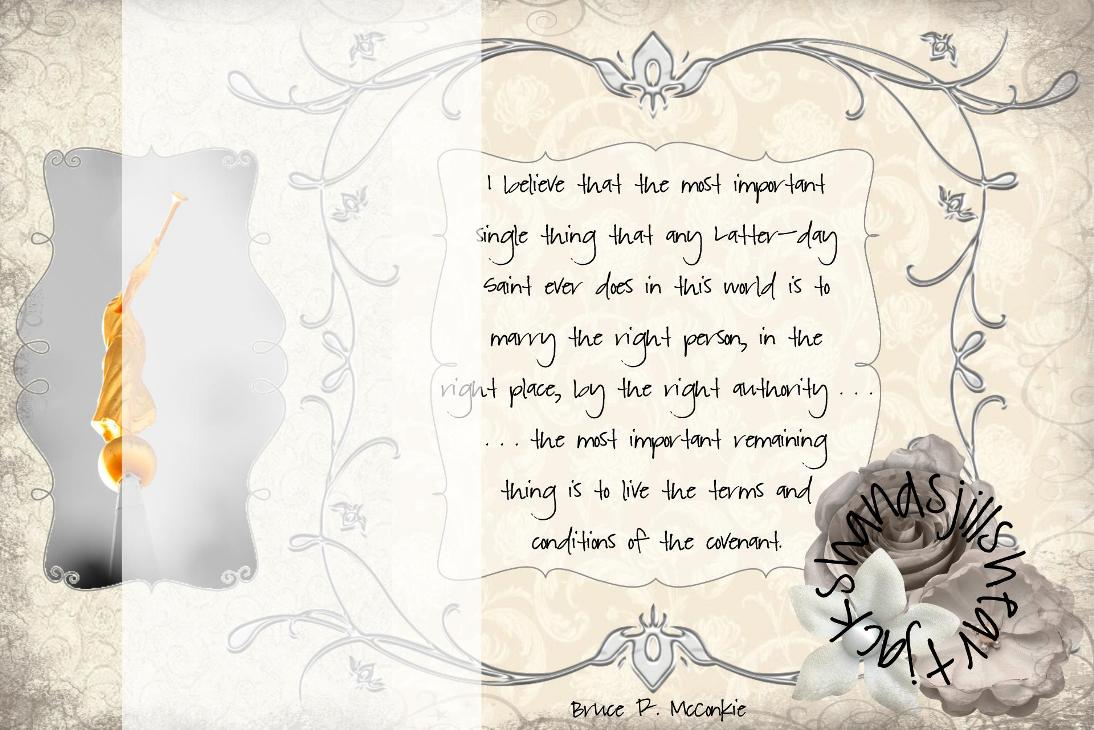 I believe that the most important
single thing that any Latter-day
Saint ever does in this world is to
marry the right person, in the
right place, by the right authority . . .
. . . the most important remaining
thing is to live the terms and
conditions of the covenant.
Bruce R. McConkie
jackshandsjillsheart